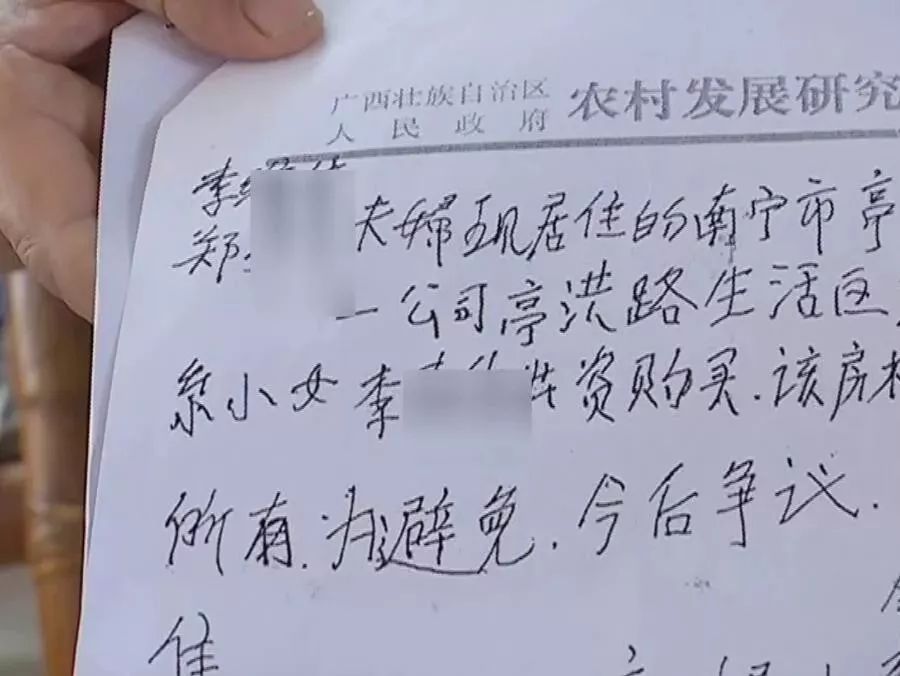 广西壮族自治区
人民政府 农村发展研究
李
郑 夫婦现居住的南宁市亭
一公司亭洪路生活区
系小女李 资购买.该房
所有.为避免.今后争议.
隹